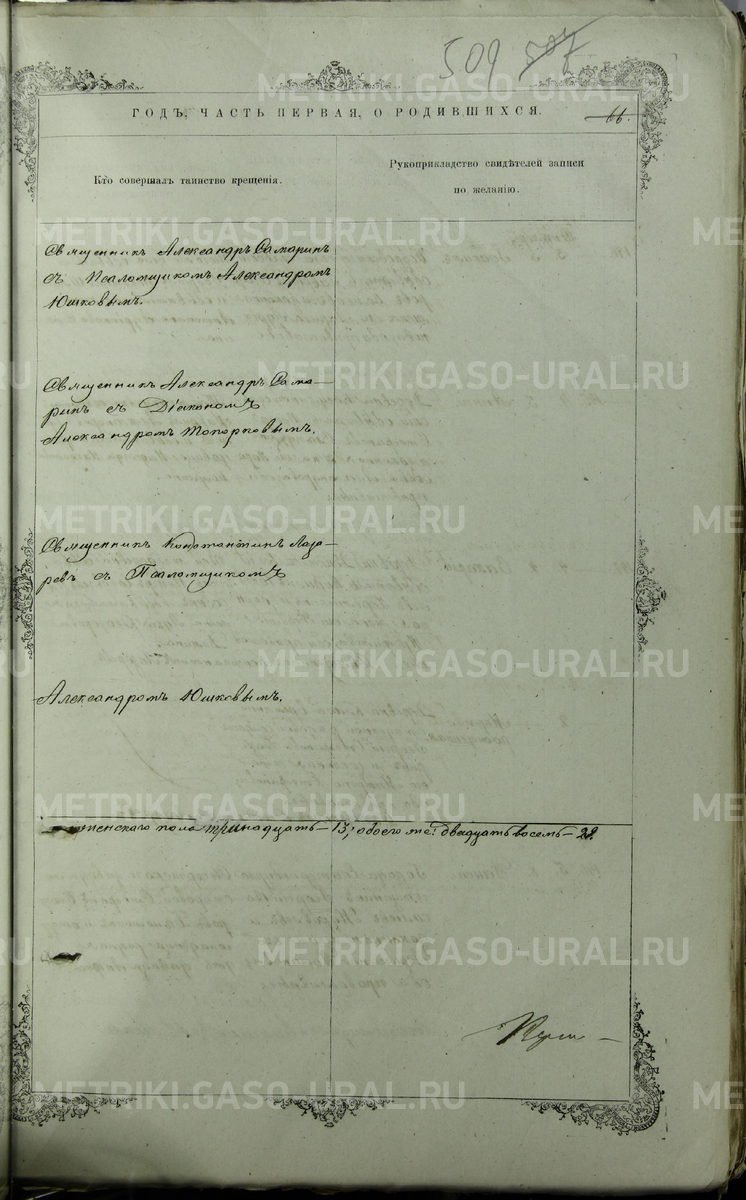 509 507
METRIKI.GASO-URAL.RU
ГОДЪ, ЧАСТЬ ПЕРВАЯ, О РОДИВШИХСЯ.
66.
Кто совершалъ таинство крещенія.
Рукоприкладство свидѣтелей записи
по желанію.
Священникъ Александръ Самаринъ
съ Псаломщикомъ Александромъ
Юшковымъ.
Священникъ Александръ Сама-
ринъ съ Діакономъ
Александромъ Топорковымъ.
Священникъ Константинъ Лаза-
ревъ съ Псаломщикомъ
Александромъ Юшковымъ.
женскаго пола тринадцать – 13, обоего же: двадцать восемь – 28.